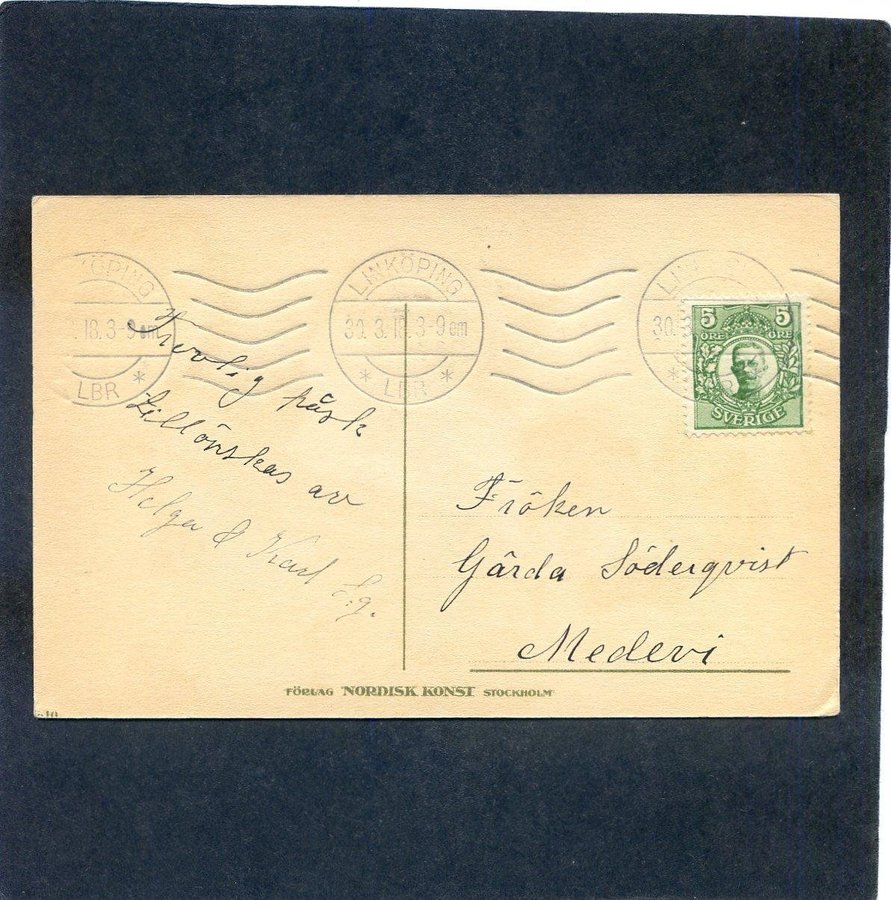 KÖPING
18.3-9 em
LBR *
LINKÖPING
30.3.18.3-9 em
* LBR *
LIN
30.
5 5
ÖRE ÖRE
SVERIGE
Trevlig påsk
tillönskas av
Helga & Karl
Fröken
Gärda Söderqvist
Medevi
FÖRLAG NORDISK KONST STOCKHOLM